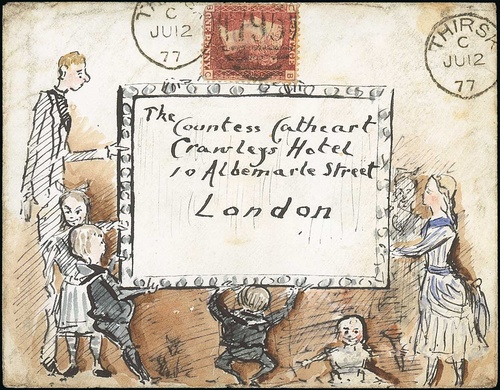 THIRSK
C
JU12
77
THIRSK
C
JU12
77
795
The Countess Cathcart
Crawleys Hotel
10 Albemarle Street
London